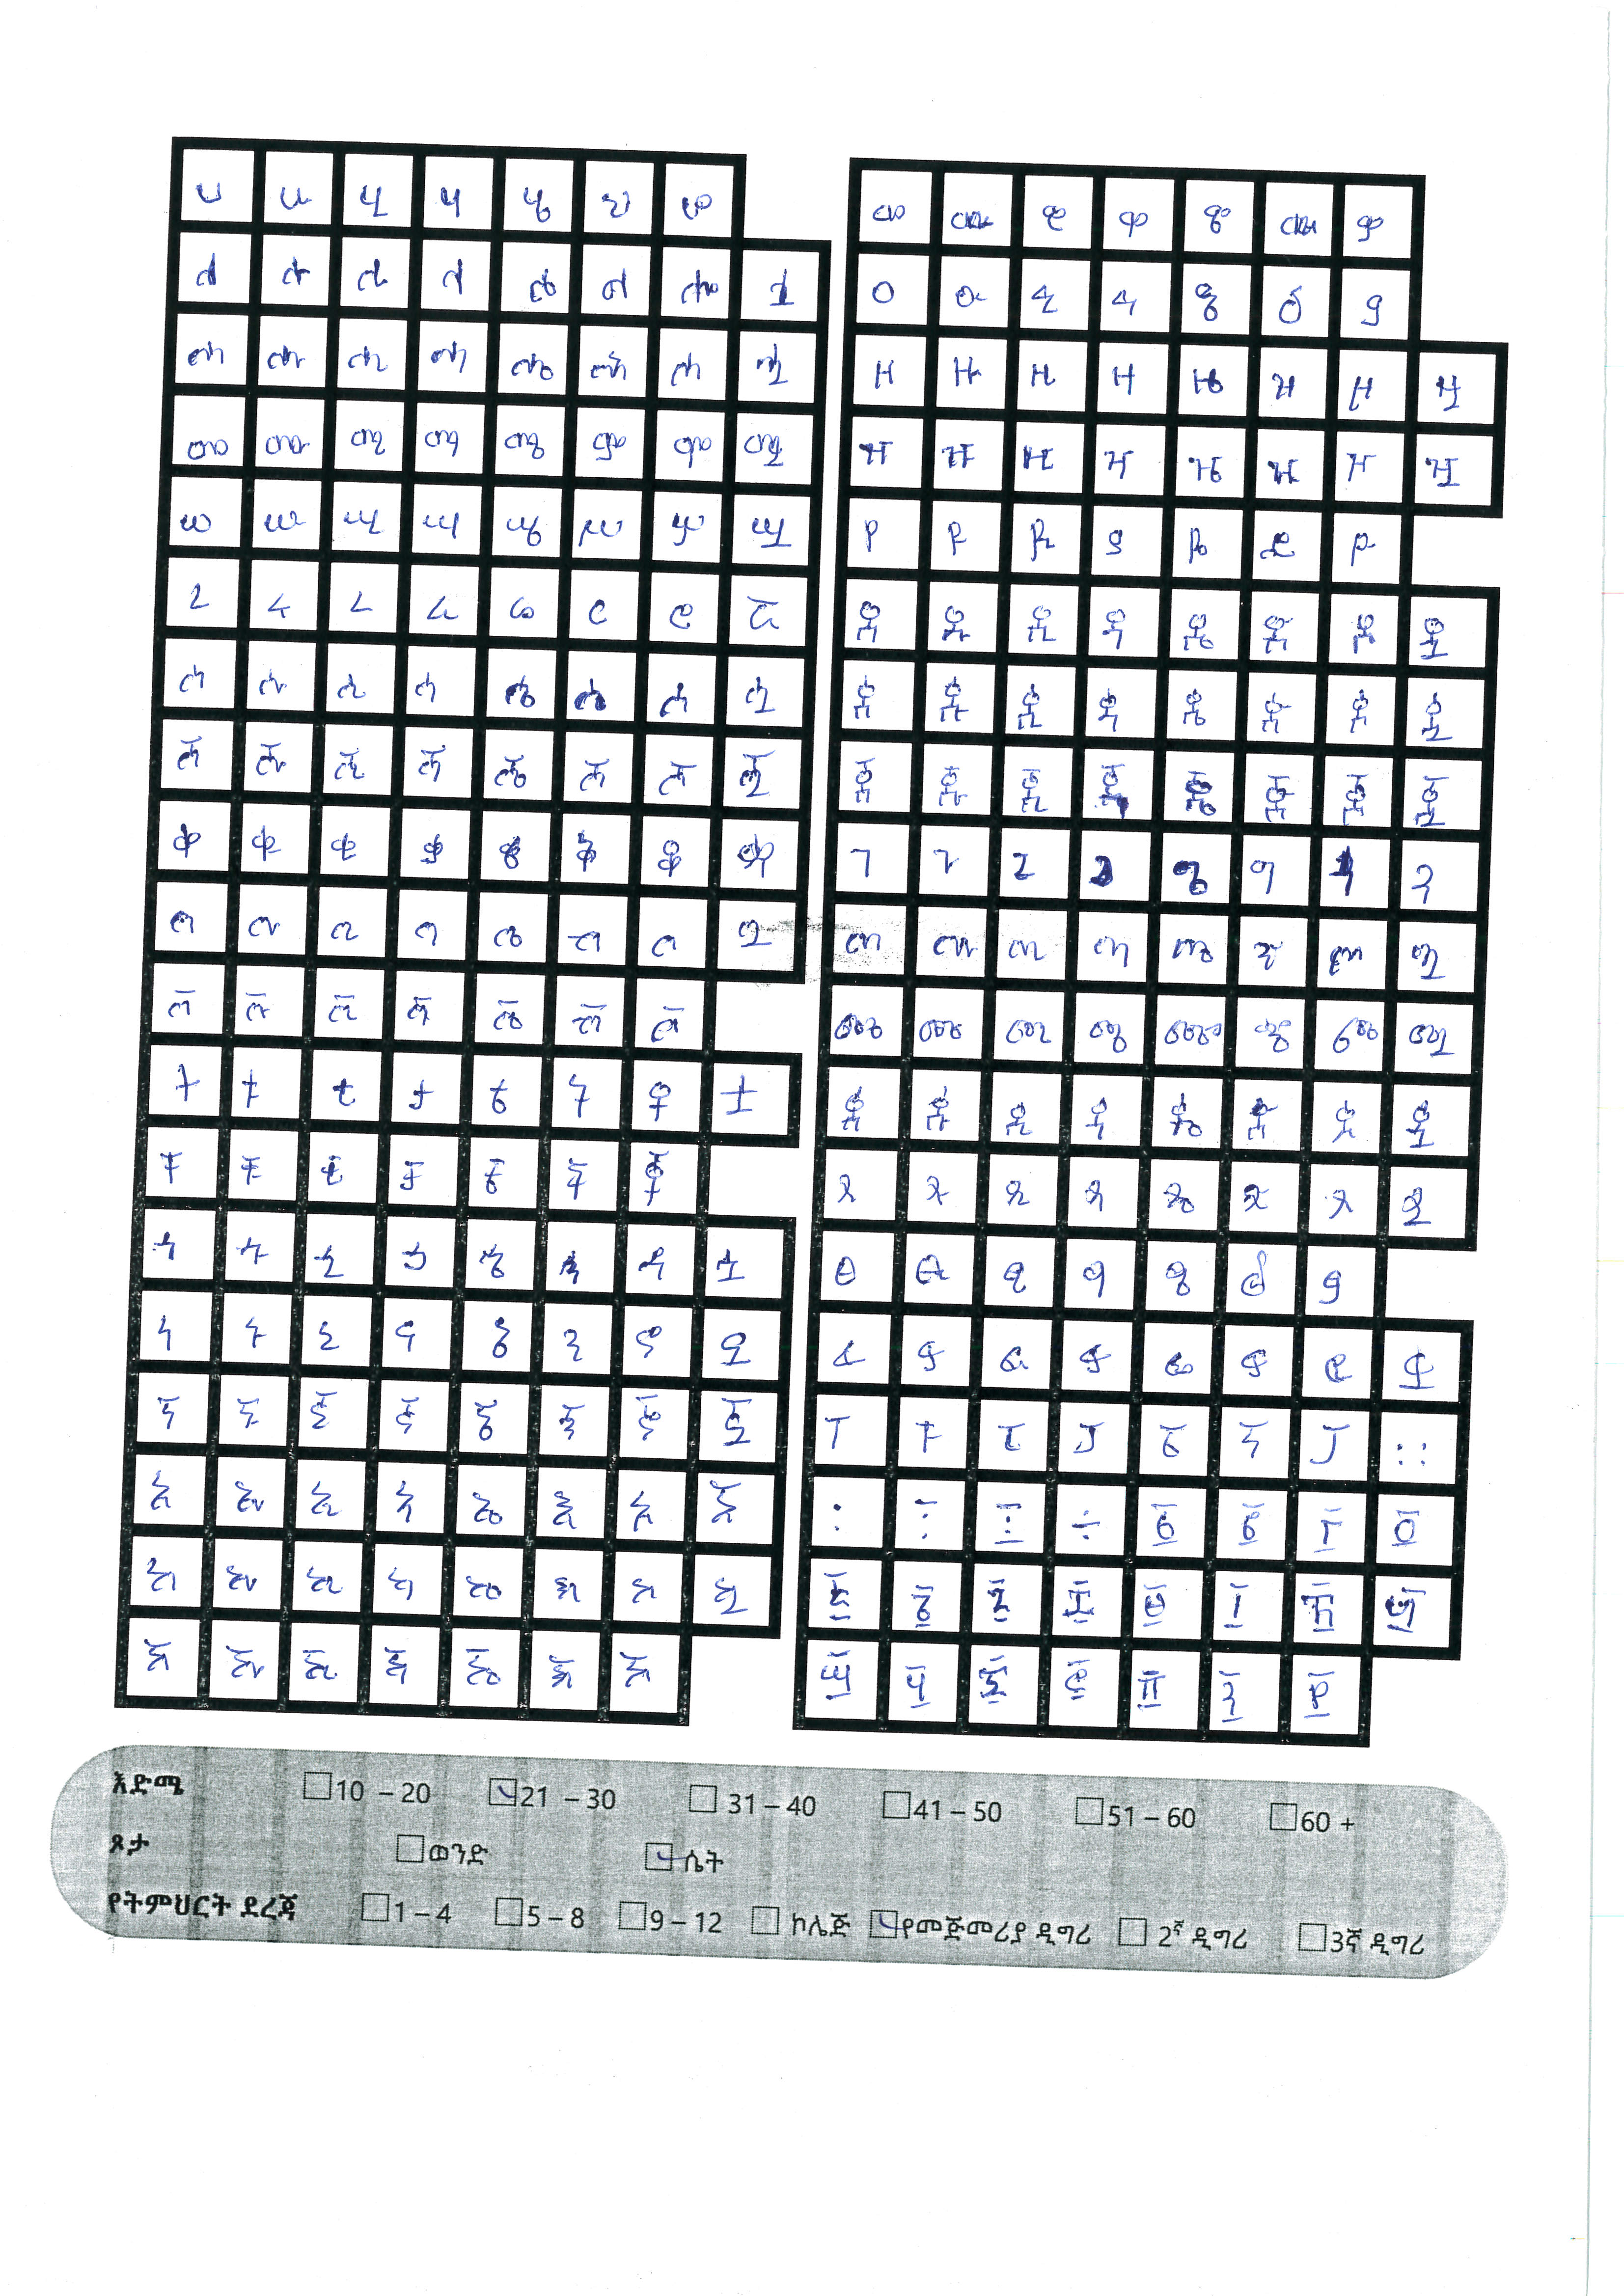 ሀ ሁ ሂ ሃ ሄ ህ ሆ
ለ ሉ ሊ ላ ሌ ል ሎ ሏ
ሐ ሑ ሒ ሓ ሔ ሕ ሖ ሗ
መ ሙ ሚ ማ ሜ ም ሞ ሟ
ሠ ሡ ሢ ሣ ሤ ሥ ሦ ሧ
ረ ሩ ሪ ራ ሬ ር ሮ ሯ
ሰ ሱ ሲ ሳ ሴ ስ ሶ ሷ
ሸ ሹ ሺ ሻ ሼ ሽ ሾ ሿ
ቀ ቁ ቂ ቃ ቄ ቅ ቆ ቋ
በ ቡ ቢ ባ ቤ ብ ቦ ቧ
ቨ ቩ ቪ ቫ ቬ ቭ ቮ
ተ ቱ ቲ ታ ቴ ት ቶ ቷ
ቸ ቹ ቺ ቻ ቼ ች ቾ
ኀ ኁ ኂ ኃ ኄ ኅ ኆ ኋ
ነ ኑ ኒ ና ኔ ን ኖ ኗ
ኘ ኙ ኚ ኛ ኜ ኝ ኞ ኟ
አ ኡ ኢ ኣ ኤ እ ኦ ኧ
ከ ኩ ኪ ካ ኬ ክ ኮ ኳ
ኸ ኹ ኺ ኻ ኼ ኽ ኾ
ወ ዉ ዊ ዋ ዌ ው ዎ
ዐ ዑ ዒ ዓ ዔ ዕ ዖ
ዘ ዙ ዚ ዛ ዜ ዝ ዞ ዟ
ዠ ዡ ዢ ዣ ዤ ዥ ዦ ዧ
የ ዩ ዪ ያ ዬ ይ ዮ
ደ ዱ ዲ ዳ ዴ ድ ዶ ዷ
ጀ ጁ ጂ ጃ ጄ ጅ ጆ ጇ
ገ ጉ ጊ ጋ ጌ ግ ጎ ጓ
ጠ ጡ ጢ ጣ ጤ ጥ ጦ ጧ
ጨ ጩ ጪ ጫ ጬ ጭ ጮ ጯ
ጰ ጱ ጲ ጳ ጴ ጵ ጶ ጷ
ጸ ጹ ጺ ጻ ጼ ጽ ጾ ጿ
ፀ ፁ ፂ ፃ ፄ ፅ ፆ
ፈ ፉ ፊ ፋ ፌ ፍ ፎ ፏ
ፐ ፑ ፒ ፓ ፔ ፕ ፖ ።
፡ ፣ ፤ ÷ ፩ ፪ ፫ ፬
፭ ፮ ፯ ፰ ፱ ፲ ፳ ፴
፵ ፶ ፷ ፸ ፹ ፺ ፻
እድሜ 10 – 20 21 – 30 31 – 40 41 – 50 51 – 60 60 +
ጾታ ወንድ ሴት
የትምህርት ደረጃ 1 – 4 5 – 8 9 – 12 ኮሌጅ የመጀመሪያ ዲግሪ 2ኛ ዲግሪ 3ኛ ዲግሪ